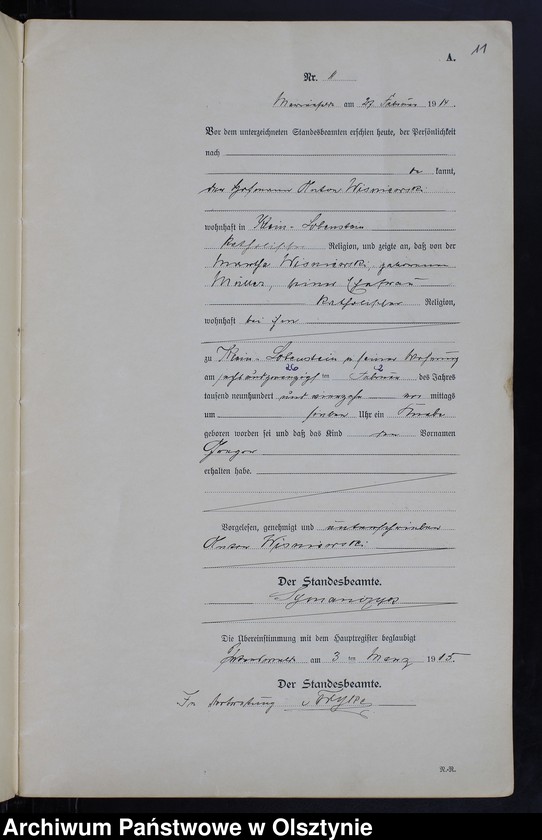 11
A.
Nr. 11
am 27 Februar 1914.
Vor dem unterzeichneten Standesbeamten erschien heute, der Persönlichkeit
nach
kannt,
Anton Wisniewski
wohnhaft in Klein-Lobenstein
katholischer Religion, und zeigte an, daß von der
Martha Wisniewski, geborenen
Müller, seiner Ehefrau
katholischer Religion,
wohnhaft bei ihm
zu Klein-Lobenstein, in seiner Wohnung
26 2
am sechsundzwanzigsten Februar des Jahres
tausend neunhundert und vierzehn vor mittags
um sieben Uhr ein Knabe
geboren worden sei und daß das Kind den Vornamen
erhalten habe.
Vorgelesen, genehmigt und unterschrieben
Anton Wisniewski
Der Standesbeamte.
Die Übereinstimmung mit dem Hauptregister beglaubigt
am 3 ten März 1915.
Der Standesbeamte.
In Vertretung
R.-R.
Archiwum Państwowe w Olsztynie